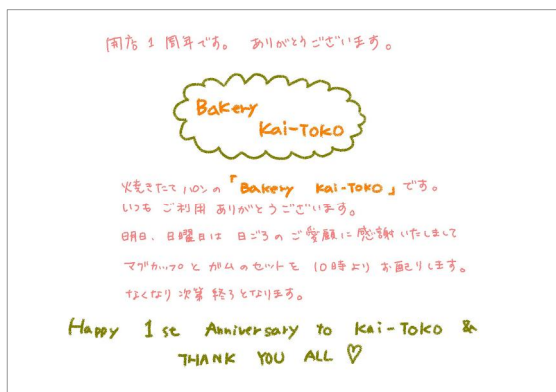 開店1周年です。 ありがとうございます。
Bakery
Kai-Toko
焼きたてパンの「Bakery Kai-Toko」です。
いつも ご利用 ありがとうございます。
明日、日曜日は 日ごろの ご愛顧に 感謝いたしまして
マグカップと ガムのセットを 10時より お配りします。
なくなり 次第 終了となります。
Happy 1st Anniversary to Kai-Toko &
THANK YOU ALL ♡